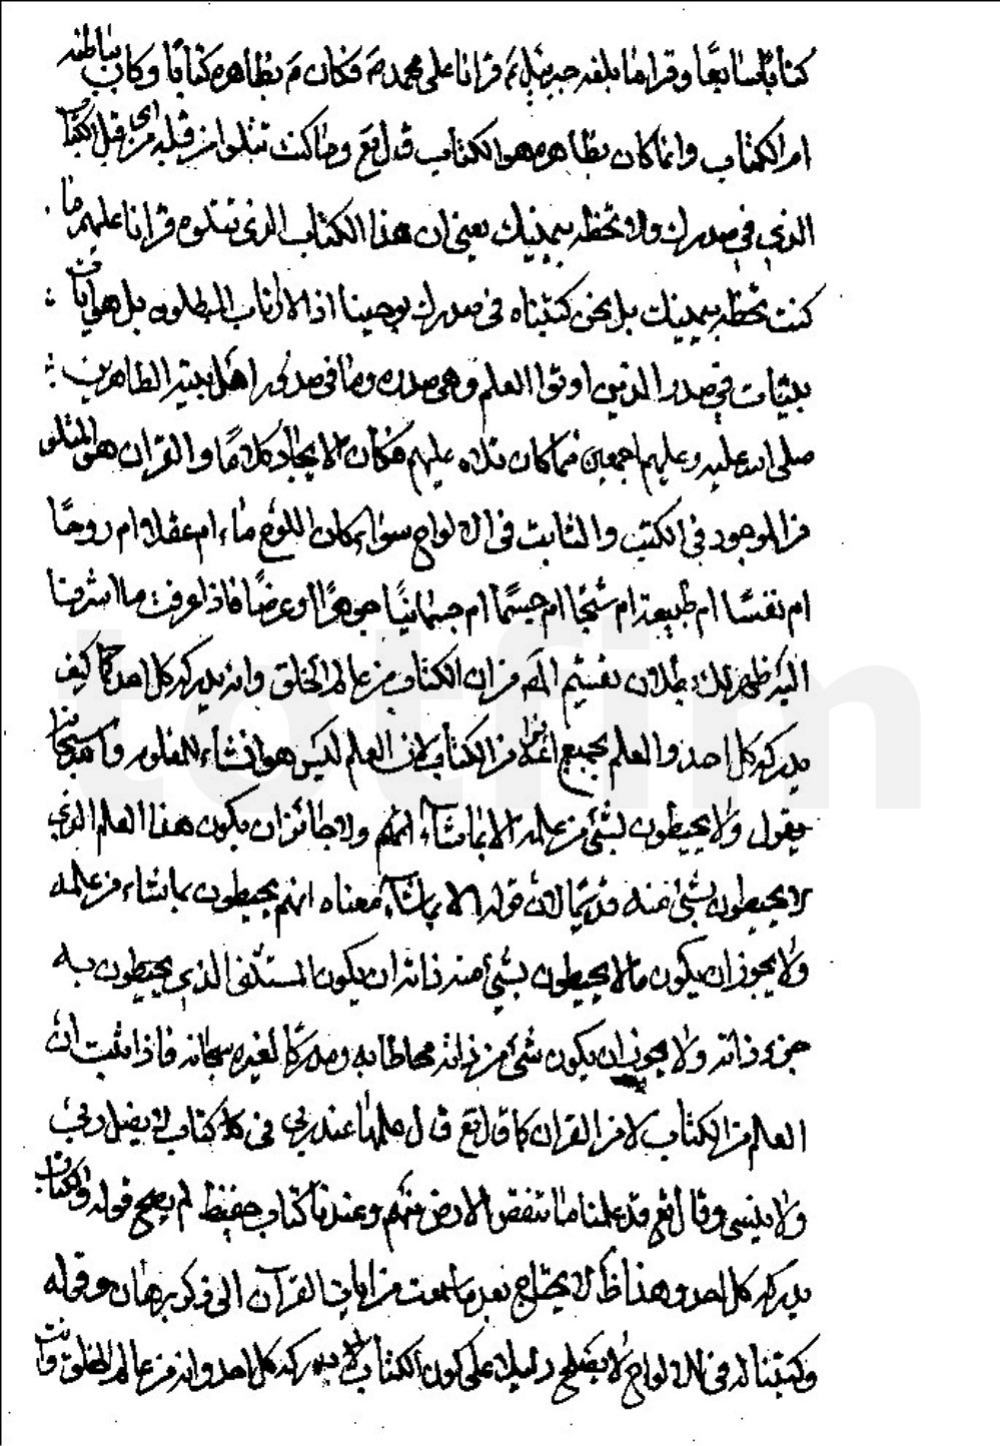 كتابًا سابقًا وقرانا بلغه جبرئيل ثم قرانا على محمد ص فكان م بظاهره كتابًا وكان بباطنه
ام الكتاب وانما كان بظاهره هو الكتاب قال تع وما كنت تتلوا من قبله اى من قبل الكتاب
الذي في صدرك ولا تخطه بيمينك يعني ان هذا الكتاب الذي تتلوه قرانا عليهم ما
كنت تخطه بيمينك بل نحن كتبناه في صدرك بوحينا اذا لارتاب المبطلون بل هو ايات
بينات في صدر الذين اوتوا العلم وهي صدره وما في صدور اهل بيته الطاهرين
صلى الله عليه وعليهم اجمعين فما كان تلاه عليهم فكان الايجاد كلامًا والقران هو المتلو
من الموجود في الكتب والثابت في الالواح سواء كان اللوح ماء ام عقلا ام روحًا
ام نفسًا ام طبيعة ام شبحًا ام جسمًا ام جسمانيًا جوهرًا او عرضًا فاذا عرفت ما اشرنا
اليه ظهر لك بطلان تفسيم الم من ان الكتاب من عالم الخلق وانه يدركه كل احد كيف
يدركه كل احد والعلم بجميع من الكتاب لان العلم ليس هو انشاء المعلوم والله سبحانه
يقول ولا يحيطون بشئ من علمه الا بما شاء ولا جائز ان يكون هذا العلم الذي
لا يحيطون بشئ منه قديمًا لان قوله الا بما شاء معناه انهم يحيطون بما شاء من علمه
ولا يجوز ان يكون ما لا يحيطون بشئ منه ذاته ان يكون المستثنى الذي يحيطون به
جزء ذاته ولا يجوز ان يكون شئ من ذاته محاطا به ومدركًا لغيره سبحانه فاذا ثبت ان
العلم من الكتاب لا من القران كما قال تع قال علمها عند ربي في كتاب لا يضل ربي
ولا ينسى وقال تع قد علمنا ما تنقص الارض منهم وعندنا كتاب حفيظ لم يصح قوله والكتاب
يدركه كل احد وهذا ظ لا يحتاج بعد ما سمعت من ايات القرآن الى ذكر برهان وقوله
وكتبنا له في الالواح لا يصلح دليلا على كون الكتاب يدركه كل احد وانه من عالم الخلق
totfim